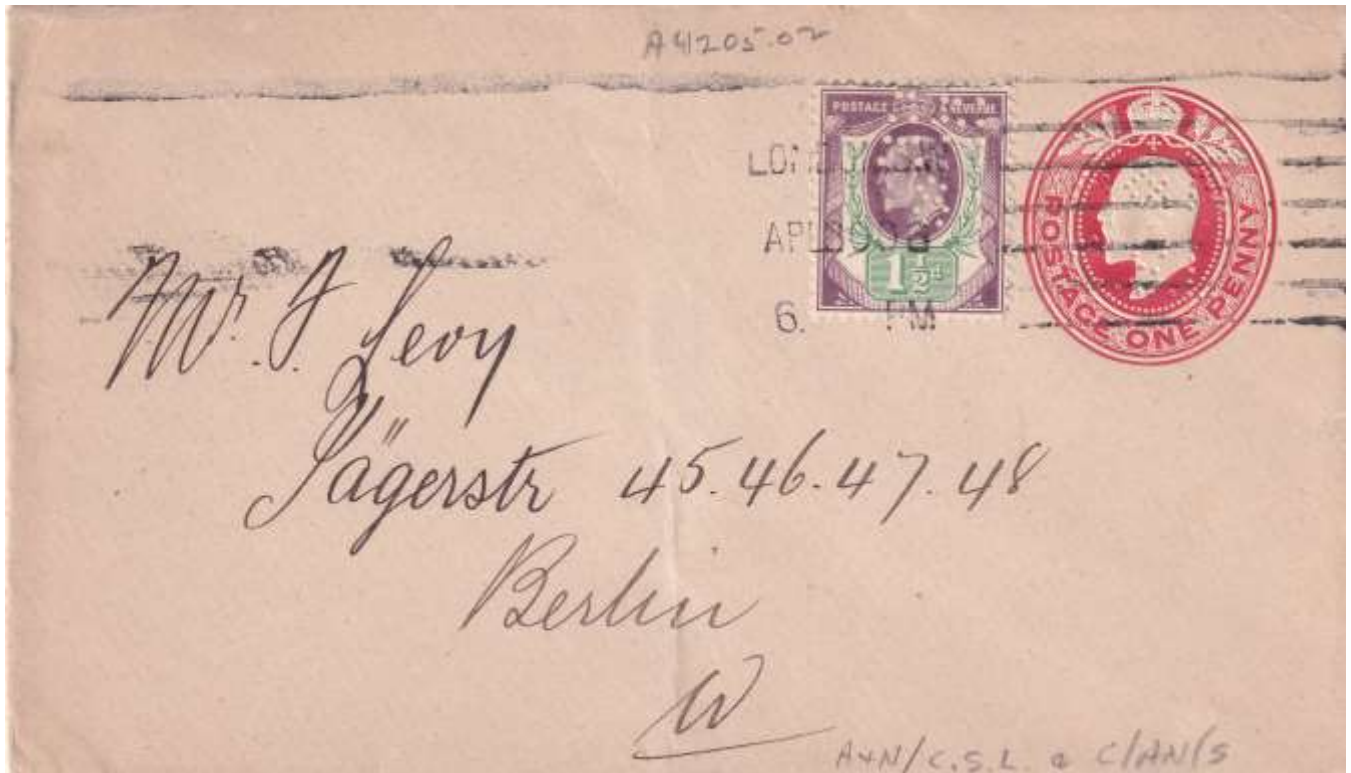 A4205.02
POSTAGE & REVENUE
1½d
LONDON
6. PM
POSTAGE ONE PENNY
Mr. J. Levy
Jägerstr 45.46.47.48
Berlin
W
A+N/C.S.L. a C/AN/S